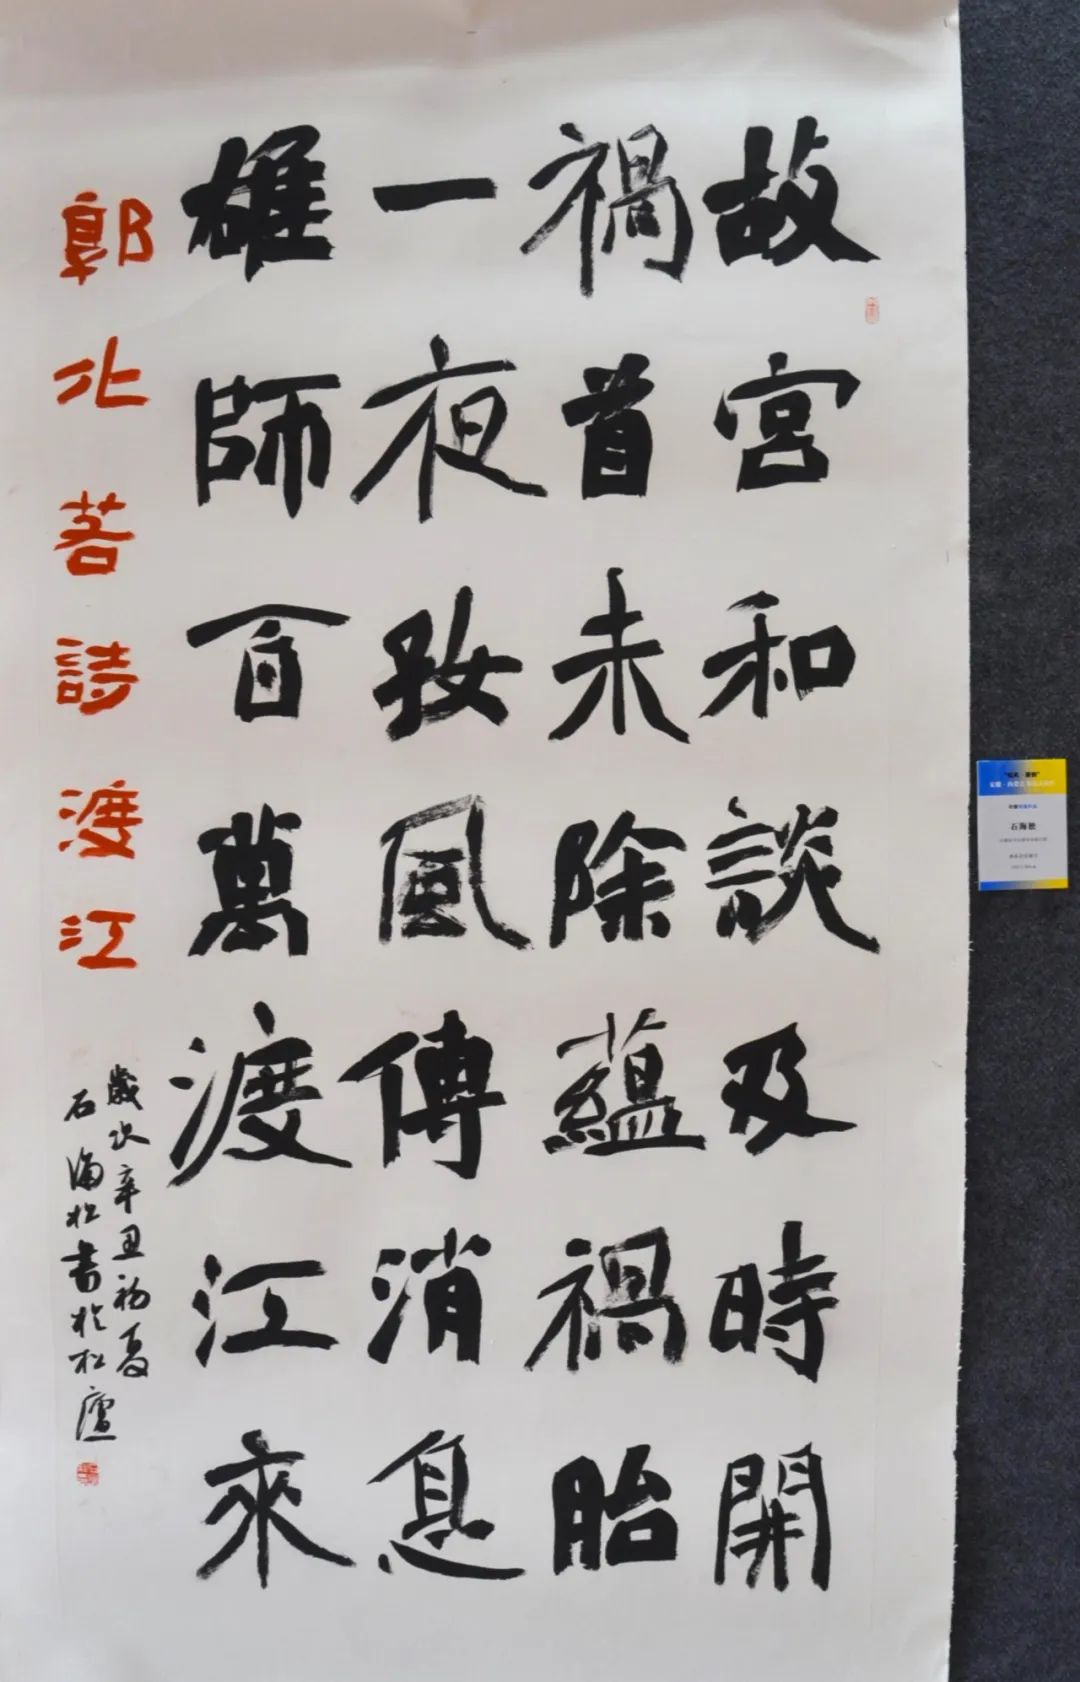 故宮和談及時開
禍首未除蘊禍胎
一夜孜風傳消息
雄師百萬渡江來
郭化若詩渡江
歲次辛丑初夏
石海松書於松廬
石海松